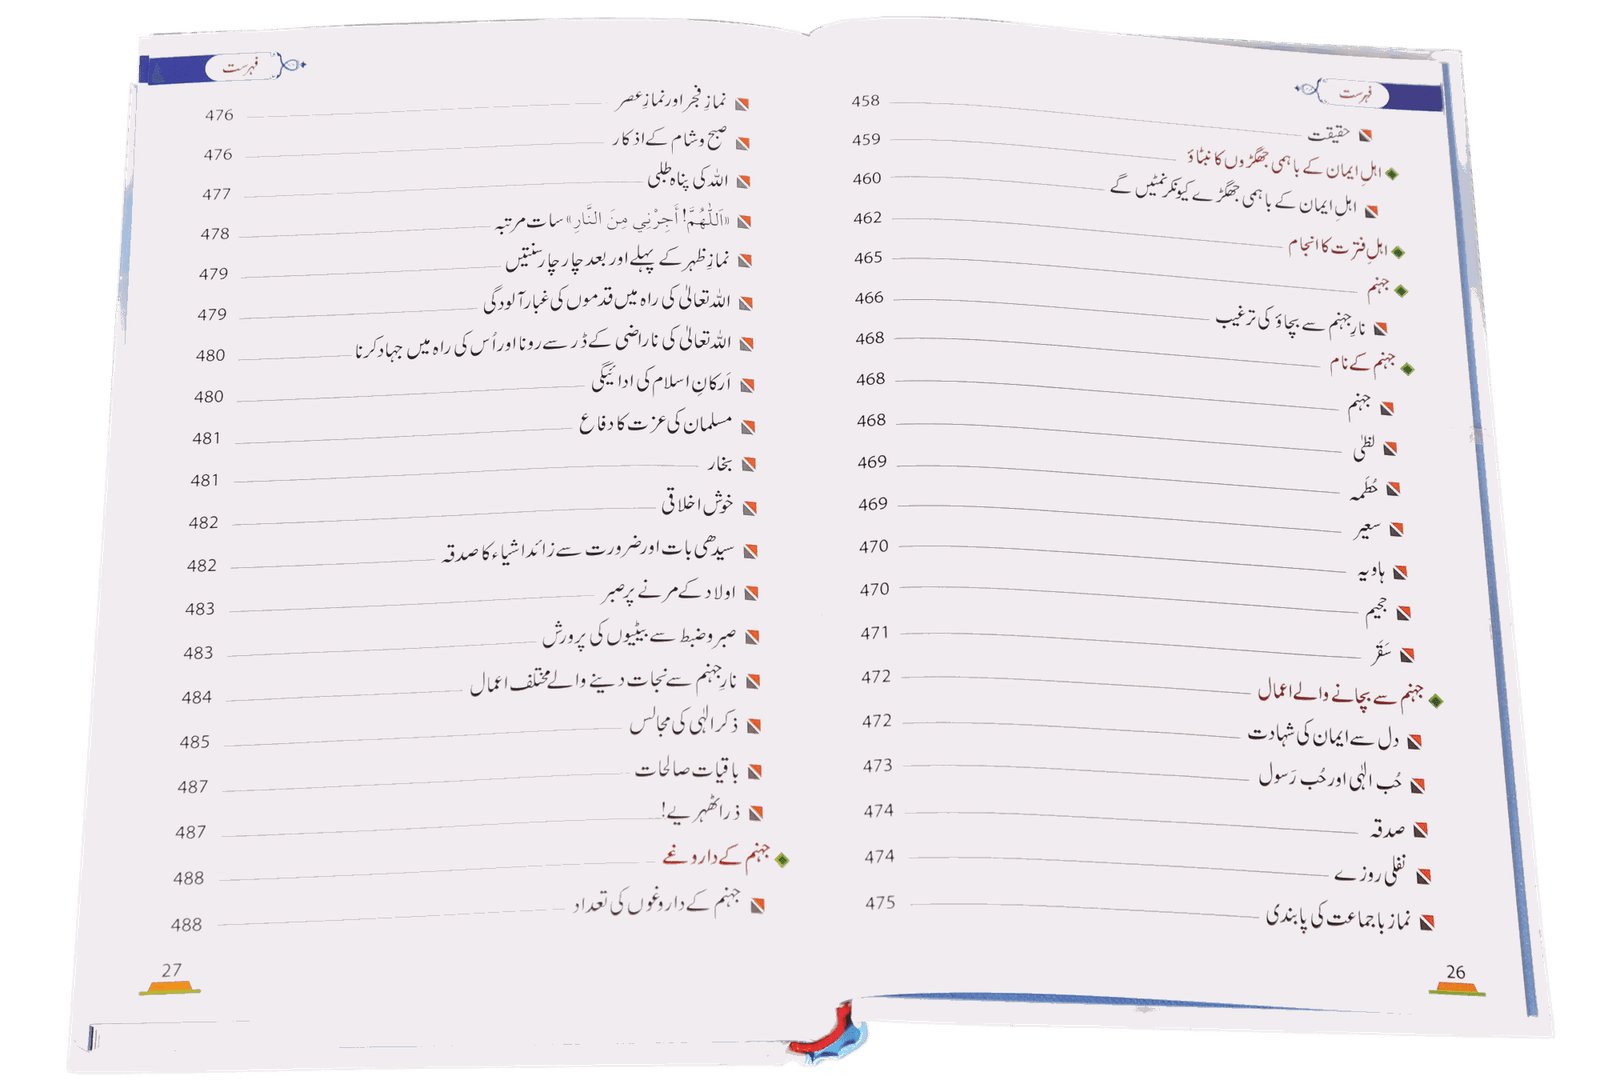 فہرست
حقیقت 458
اہلِ ایمان کے باہمی جھگڑوں کا نبٹاؤ 459
اہلِ ایمان کے باہمی جھگڑے کیونکر نمٹیں گے 460
اہلِ فترت کا انجام 462
جہنم 465
نارِ جہنم سے بچاؤ کی ترغیب 466
جہنم کے نام 468
جہنم 468
لظیٰ 468
حُطَمہ 469
سعیر 469
ہاویہ 470
جحیم 470
سَقَر 471
جہنم سے بچانے والے اعمال 472
دل سے ایمان کی شہادت 472
حُب الٰہی اور حُب رَسول 473
صدقہ 474
نفلی روزے 474
نماز باجماعت کی پابندی 475
26
فہرست
نمازِ فجر اور نمازِ عصر 476
صبح و شام کے اذکار 476
اللہ کی پناہ طلبی 477
«اَللّٰهُمَّ! أَجِرْنِي مِنَ النَّارِ» سات مرتبہ 478
نمازِ ظہر کے پہلے اور بعد چار چار سنتیں 479
اللہ تعالیٰ کی راہ میں قدموں کی غبار آلودگی 479
اللہ تعالیٰ کی ناراضی کے ڈر سے رونا اور اُس کی راہ میں جہاد کرنا 480
اَرکانِ اسلام کی ادائیگی 480
مسلمان کی عزت کا دفاع 481
بخار 481
خوش اخلاقی 482
سیدھی بات اور ضرورت سے زائد اشیاء کا صدقہ 482
اولاد کے مرنے پر صبر 483
صبر و ضبط سے بیٹیوں کی پرورش 483
نارِ جہنم سے نجات دینے والے مختلف اعمال 484
ذکر الٰہی کی مجالس 485
باقیات صالحات 487
ذرا ٹھہریے! 487
جہنم کے داروغے 488
جہنم کے داروغوں کی تعداد 488
27